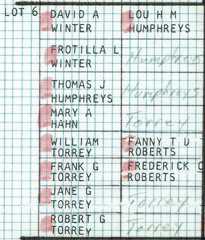 LOT 6
DAVID A
WINTER
LOU H M
HUMPHREYS
FROTILLA L
WINTER
Humphreys
THOMAS J
HUMPHREYS
Humphreys
MARY A
HAHN
Torrey
WILLIAM
TORREY
FANNY T U
ROBERTS
FRANK G
TORREY
FREDERICK C
ROBERTS
JANE G
TORREY
Torrey
ROBERT G
TORREY
Torrey